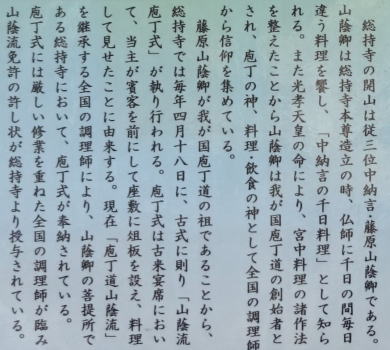 総持寺の開山は従三位中納言・藤原山蔭卿である。
山蔭卿は総持寺本尊造立の時、仏師に千日の間毎日
違う料理を饗し、「中納言の千日料理」として知ら
れる。また光孝天皇の命により、宮中料理の諸作法
を整えたことから山蔭卿は我が国庖丁道の創始者と
され、庖丁の神、料理・飲食の神として全国の調理師
から信仰を集めている。
藤原山蔭卿が我が国庖丁道の祖であることから、
総持寺では毎年四月十八日に、古式に則り「山蔭流
庖丁式」が執り行われる。庖丁式は古来宴席におい
て、当主が賓客を前にして座敷に俎板を設え、料理
して見せたことに由来する。現在「庖丁道山蔭流」
を継承する全国の調理師により、山蔭卿の菩提所で
ある総持寺において、庖丁式が奉納されている。
庖丁式には厳しい修業を重ねた全国の調理師が臨み
山蔭流免許の許し状が総持寺より授与されている。